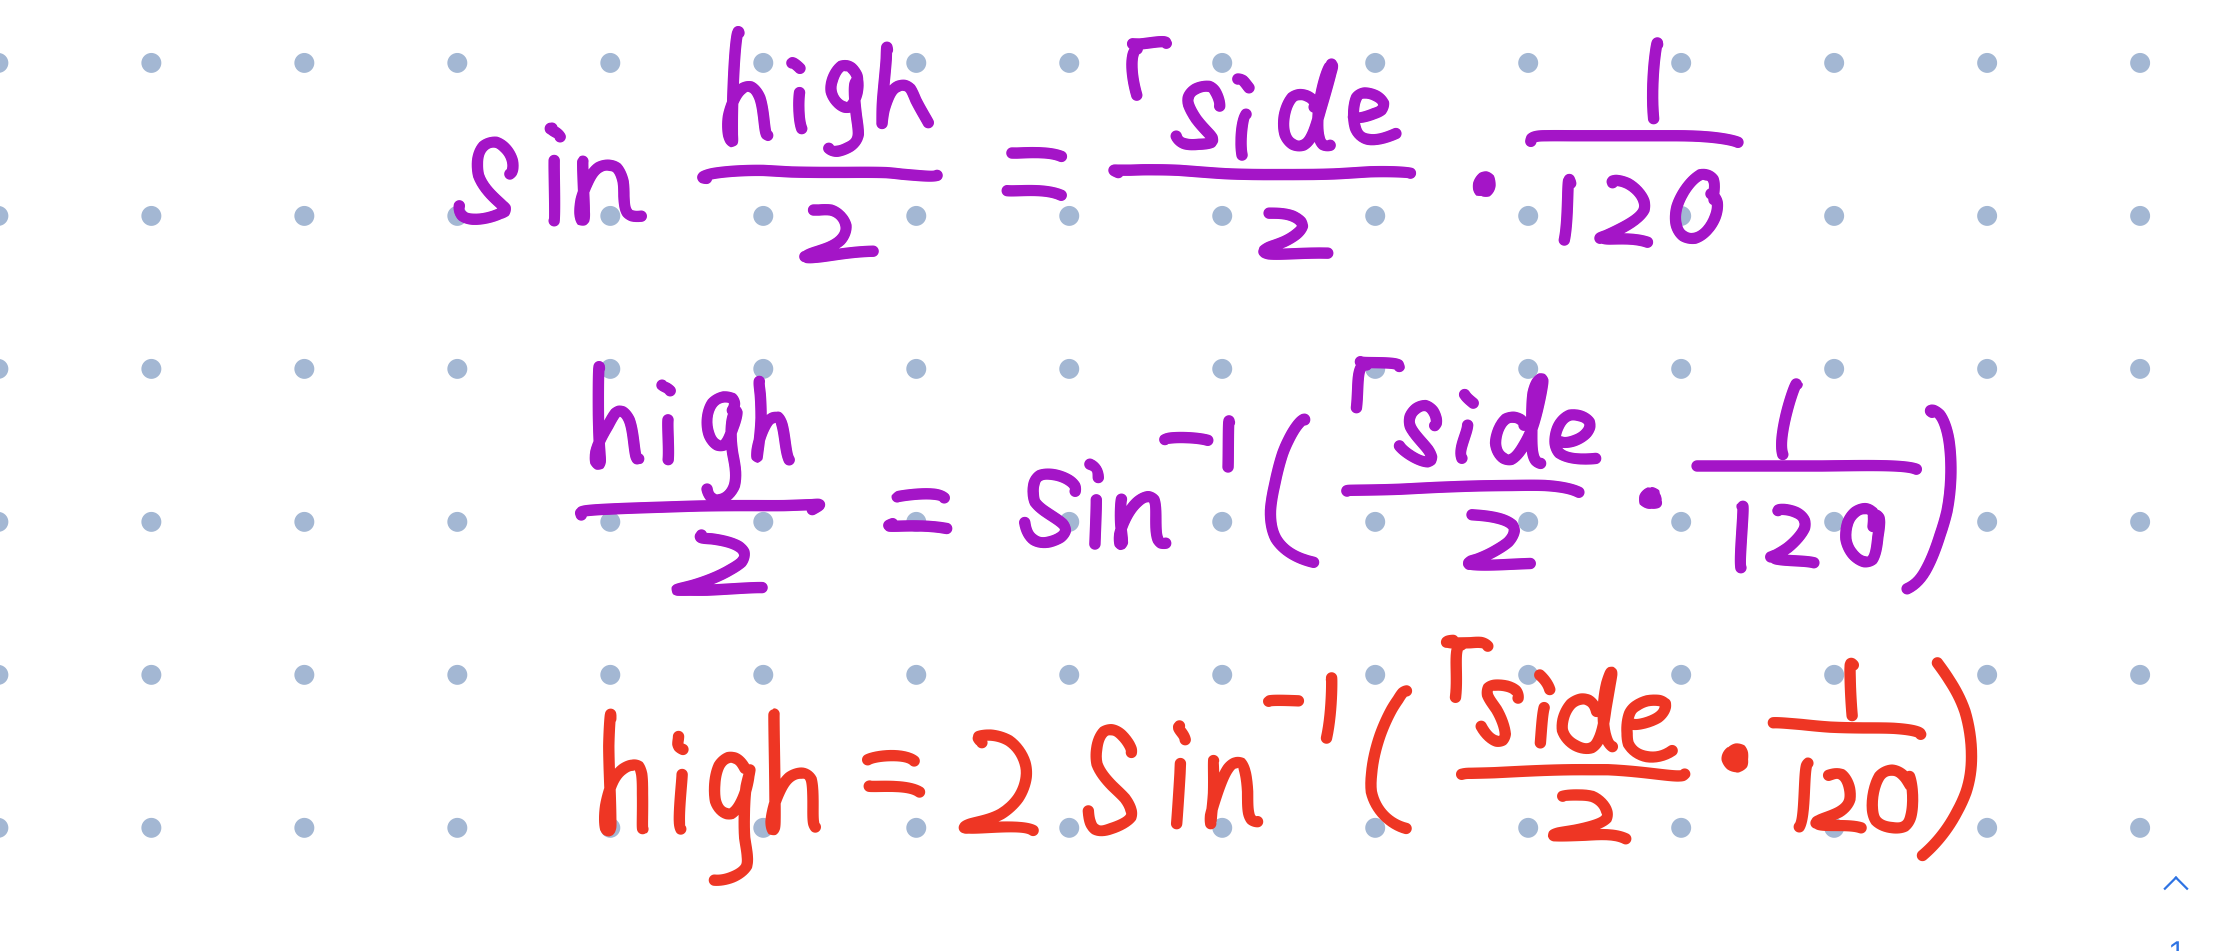 sin high/2 = rside/2 · 1/120
high/2 = sin⁻¹(rside/2 · 1/120)
high = 2 sin⁻¹(rside/2 · 1/120)